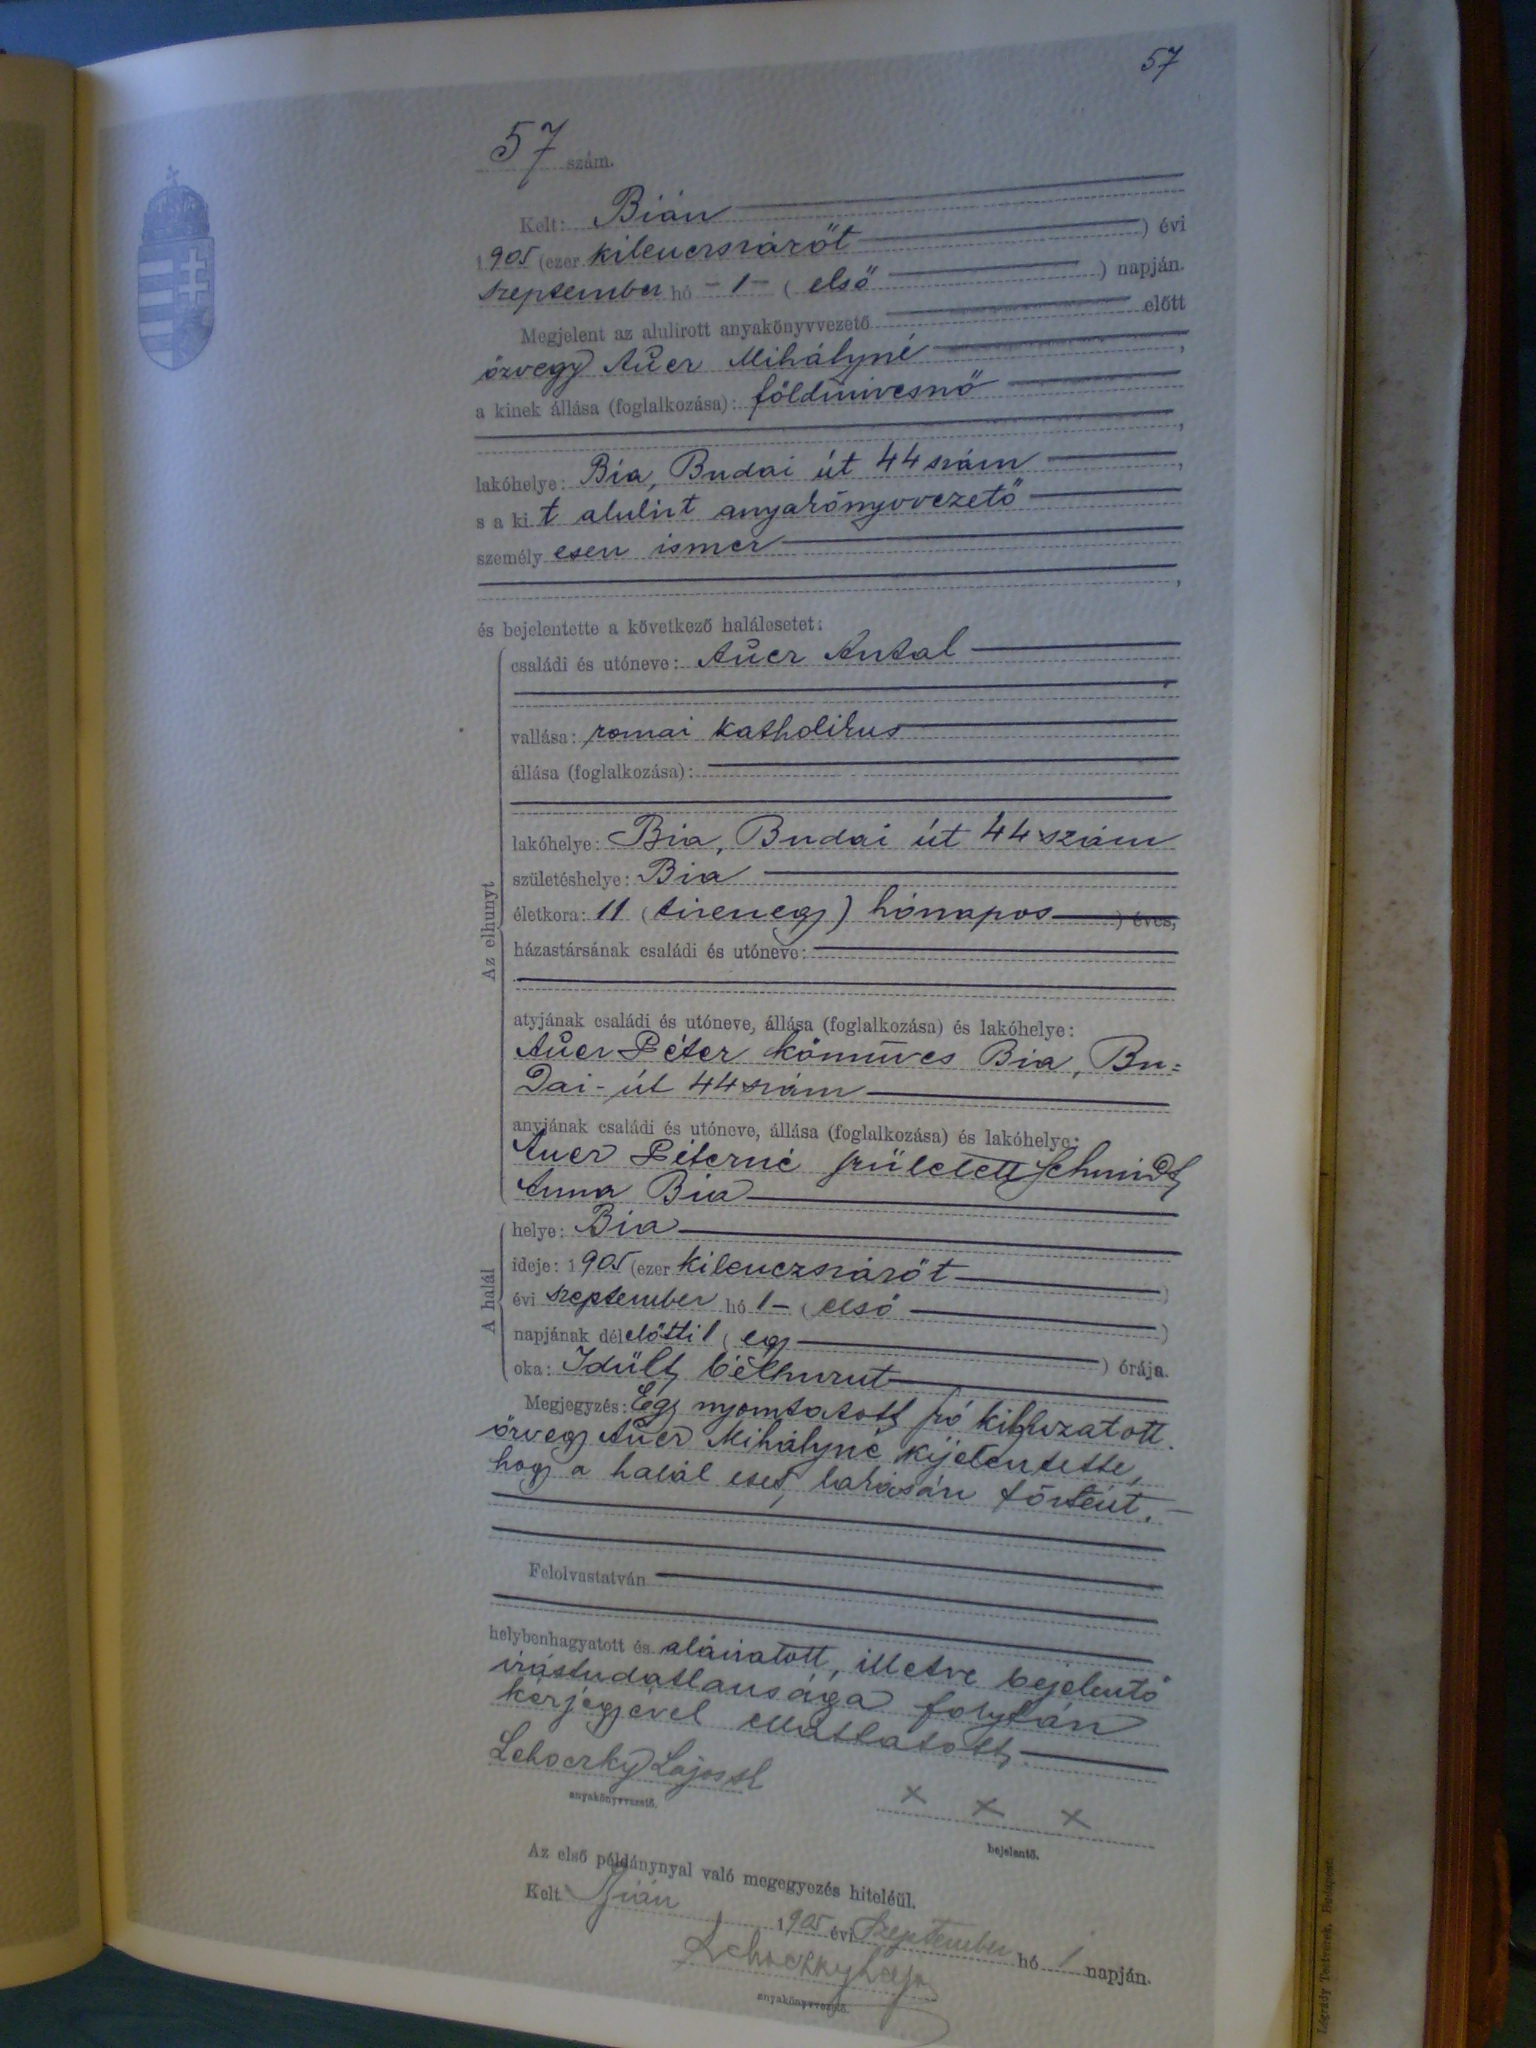 57
57 szám.
Kelt: Bián
1905 (ezer kilencszázöt ) évi
szeptember hó - 1 - ( első ) napján.
Megjelent az alulirott anyakönyvvezető előtt
özvegy Auer Mihályné ,
a kinek állása (foglalkozása): földmivesnő
,
lakóhelye: Bia, Budai út 44 szám ,
s a kit alulirt anyakönyvvezető
személyesen ismer
,
és bejelentette a következő halálesetet:
Az elhunyt
családi és utóneve: Auer Antal
vallása: romai katholikus
állása (foglalkozása):
lakóhelye: Bia, Budai út 44 szám
születéshelye: Bia
életkora: 11 (tizenegy) hónapos ) éves,
házastársának családi és utóneve:
atyjának családi és utóneve, állása (foglalkozása) és lakóhelye:
Auer Péter kőmüves Bia, Bu=
dai-út 44 szám
anyjának családi és utóneve, állása (foglalkozása) és lakóhelye:
Auer Péterné született Schmidt
Anna Bia
A halál
helye: Bia
ideje: 1905 (ezer kilenczszázöt )
évi szeptember hó 1- ( első )
napjának délelőtti 1 ( egy ) órája.
oka: Idült bélhurut
Megjegyzés: Egy nyomtatott szó kihuzatott.
özvegy Auer Mihályné kijelentette,
hogy a halál eset, lakásán történt. -
Felolvastatván
helybenhagyatott és aláiratott, illetve bejelentő
irástudatlansága folytán
kézjegyével elláttatott.
Lehoczky Lajos
anyakönyvvezető.
x x x
bejelentő.
Az első példánynyal való megegyezés hiteléül.
Kelt Bián 1905 évi Szeptember hó 1 napján.
Lehoczky Lajos
anyakönyvvezető.
Légrády Testvérek, Budapest.